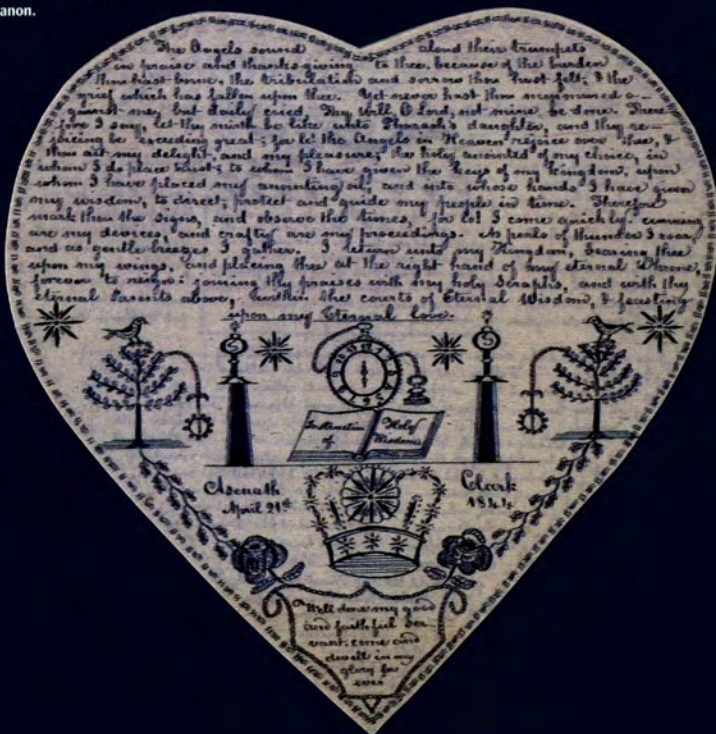 anon.
The Angels sound aloud their trumpets
in praise and thanksgiving to thee, because of the burden
thou hast borne, the tribulation and sorrow thou hast felt, & the
grief which has fallen upon thee. Yet never hast thou murmured a-
gainst me, but daily cried, Thy will, O Lord, not mine be done. There-
fore I say, let thy mirth be like unto Pharaoh's daughter, and thy re-
joicing be exceeding great; for lo! the Angels in Heaven rejoice over thee, &
thou art my delight, and my pleasure; the holy anointed of my choice, in
whom I do place trust; to whom I have given the keys of my kingdom, upon
whom I have placed my anointing oil, and into whose hands I have given
my wisdom, to direct, protect and guide my people in time. Therefore
mark thou the signs, and observe the times, for lo! I come quickly: cunning
are my devices, and crafty are my proceedings. As peals of thunder I roar,
and as gentle breezes I gather. I return unto my Kingdom, bearing thee
upon my wings, and placing thee at the right hand of my eternal Throne,
forever to reign: joining thy praises with my holy Seraphs, and with thy
eternal Parents above, within the courts of Eternal Wisdom, & feasting
upon my Eternal love.
S S
Instruction Holy
of Wisdom
Asenath Clark
April 21st 1844
Well done my good
and faithful ser-
vant; come and
dwell in my
glory for
ever